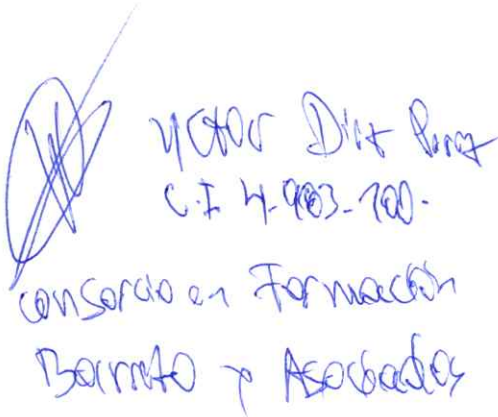 Victor Diaz Perez
C.I 4.983.700.
consorcio en Formación
Barreto y Asociados